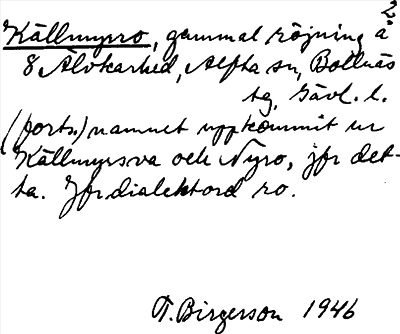 2
Källmyrro, gammal röjning å
8 Älvkarhed, Alfta sn, Bollnäs
tg, Gävl. l.
(forts.) namnet uppkommit ur
Källmyrsva och Nyro, jfr det-
ta. Jfr dialektord ro.
T. Birgerson 1946